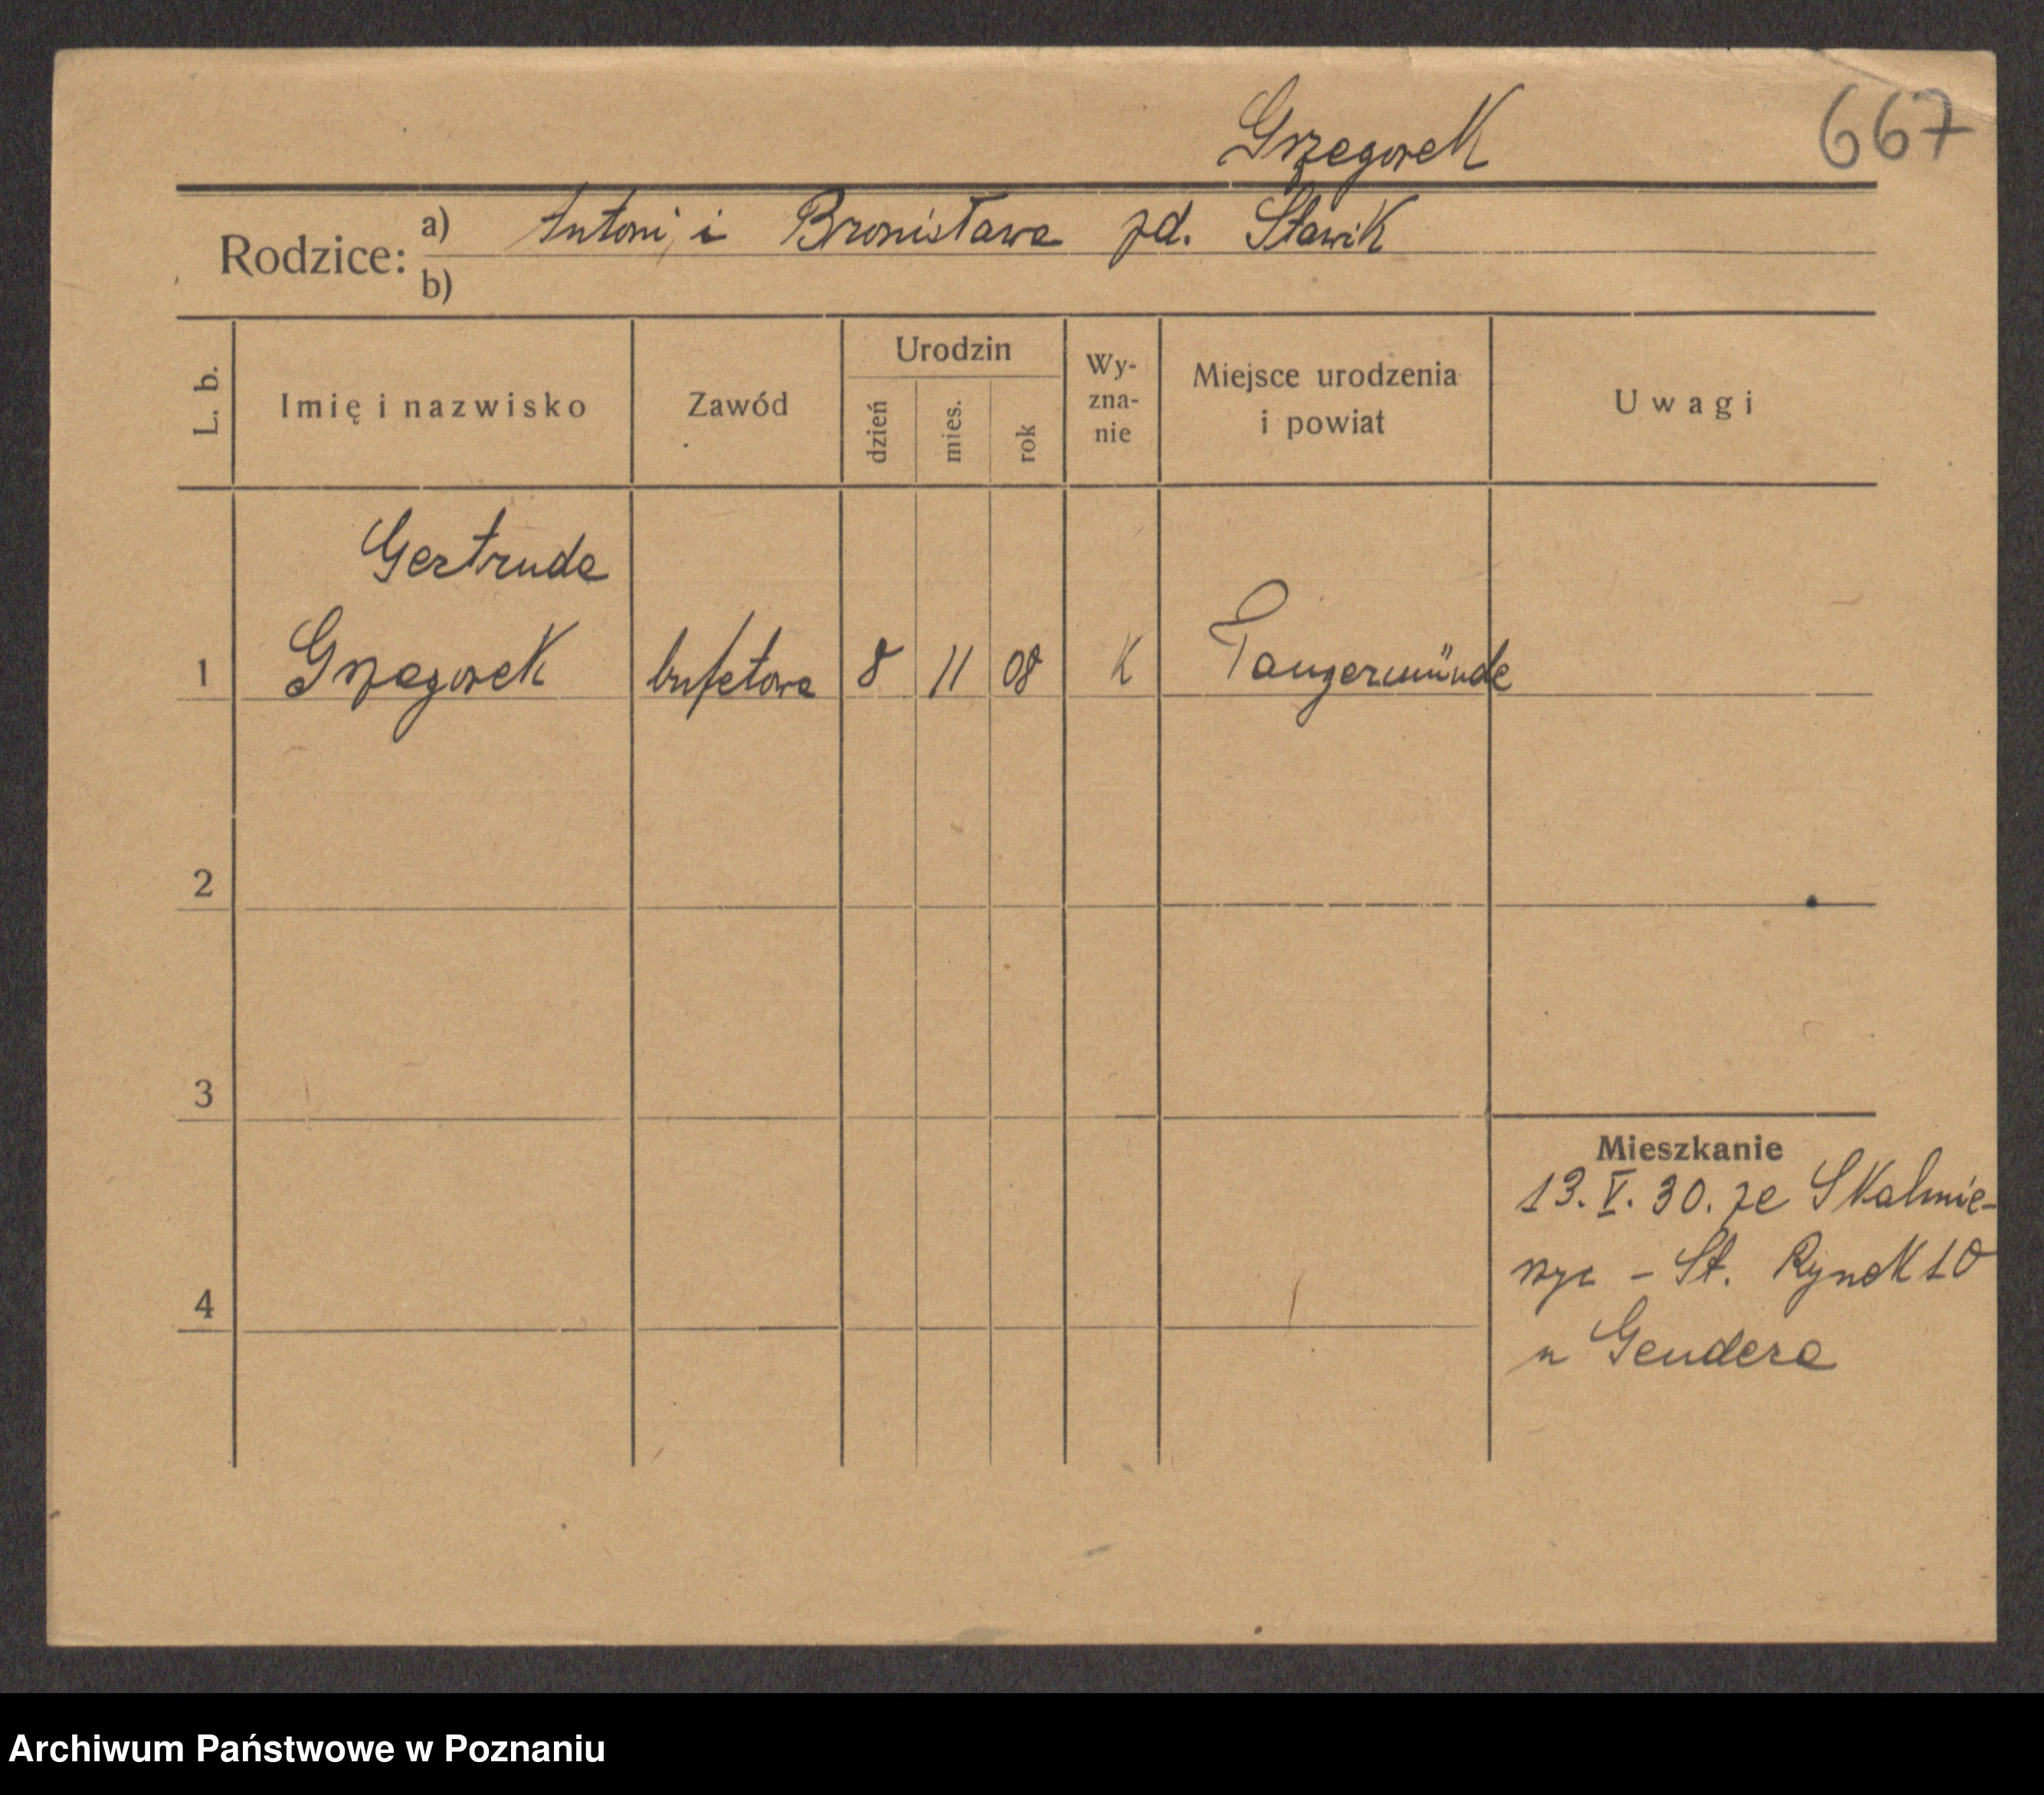 Grzegorek
667
Rodzice: a) Antoni i Bronisława zd. Stawik
b)
L. b.
Imię i nazwisko
Zawód
Urodzin
dzień
mies.
rok
Wy-
zna-
nie
Miejsce urodzenia
i powiat
Uwagi
Gertruda
1 Grzegorek bufetowa 8 11 08 K Tangermünde
2
3
Mieszkanie
13. V. 30. ze Skalmie-
rzyc - St. Rynek 10
4
u Gendera
Archiwum Państwowe w Poznaniu